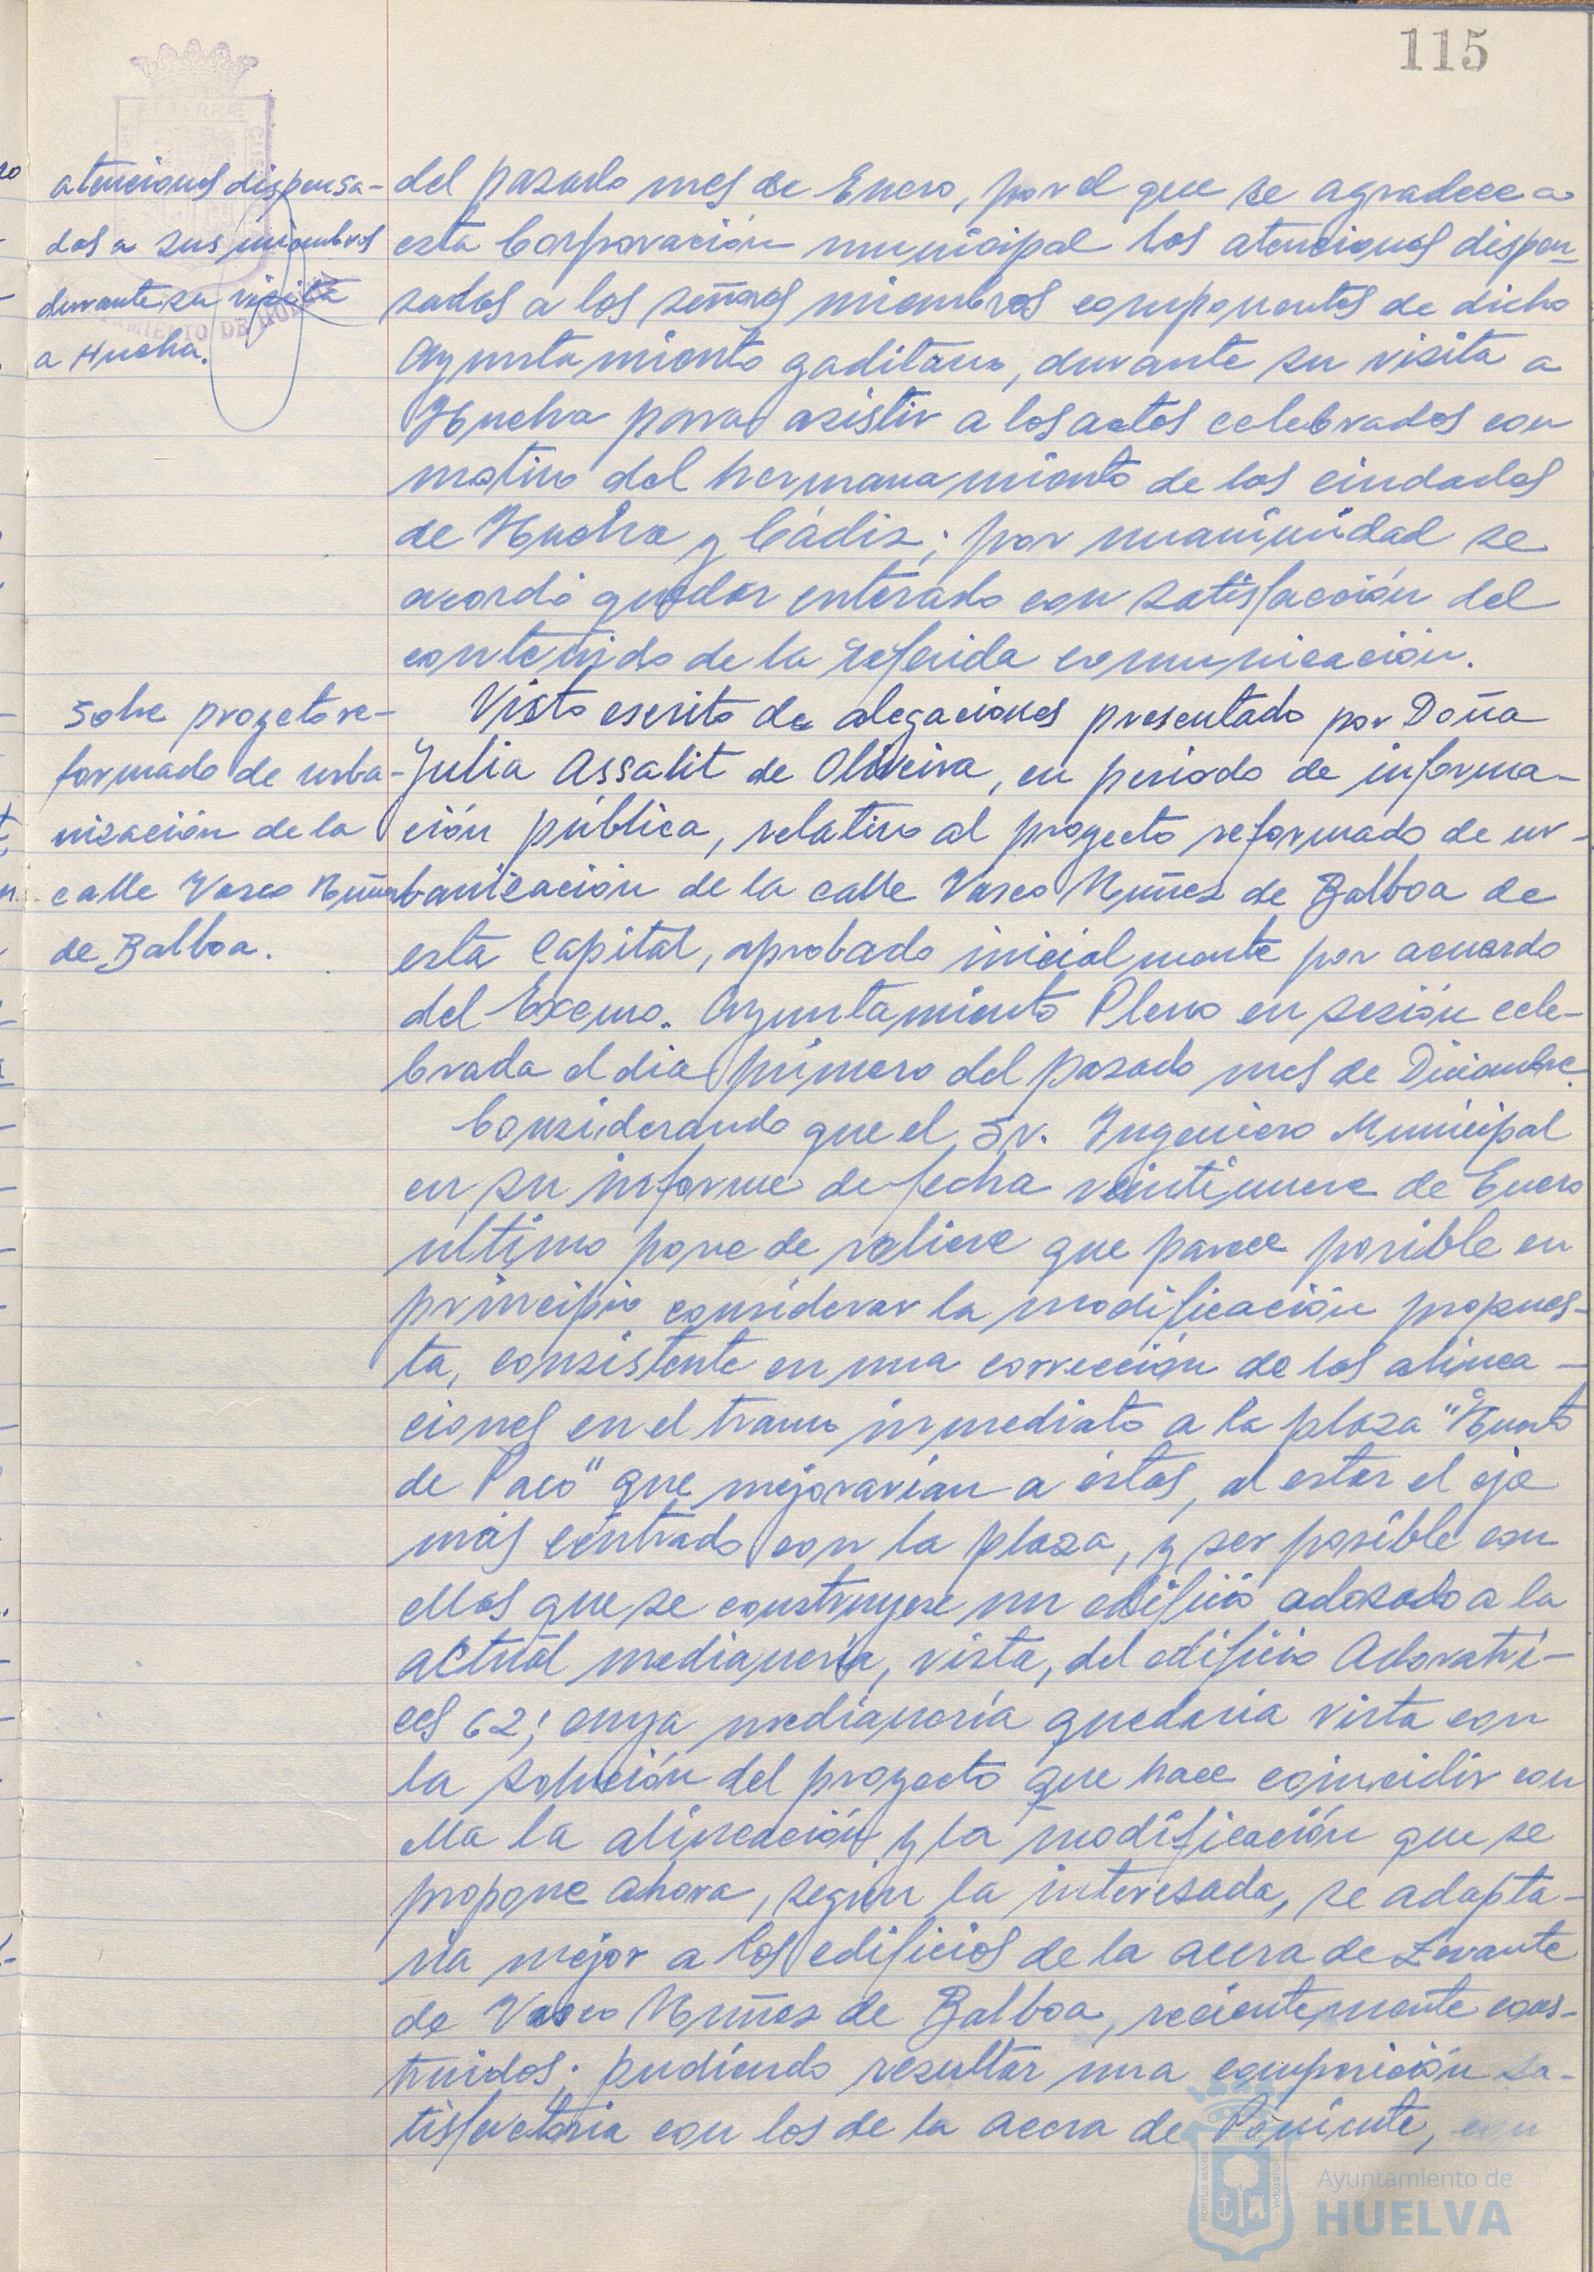 115
atenciones dispensa-
das a sus miembros
durante su visita
a Huelva.
del pasado mes de Enero, por el que se agradece a
esta Corporación municipal las atenciones dispen-
sadas a los señores miembros componentes de dicho
Ayuntamiento gaditano, durante su visita a
Huelva para asistir a los actos celebrados con
motivo del hermanamiento de las ciudades
de Huelva y Cádiz; por unanimidad se
acordó quedar enterado con satisfacción del
contenido de la referida comunicación.
Sobre proyecto re-
formado de urba-
nización de la
calle Vasco Nuñez
de Balboa.
Visto escrito de alegaciones presentado por Doña
Julia Assalit de Oliveira, en periodo de informa-
ción pública, relativo al proyecto reformado de ur-
banización de la calle Vasco Nuñez de Balboa de
esta Capital, aprobado inicialmente por acuerdo
del Excmo. Ayuntamiento Pleno en sesión cele-
brada el dia primero del pasado mes de Diciembre.
Considerando que el Sr. Ingeniero Municipal
en su informe de fecha veintinueve de Enero
ultimo pone de relieve que parece posible en
principio considerar la modificación propues-
ta, consistente en una corrección de las alinea-
ciones en el tramo inmediato a la plaza "Huerto
de Paco" que mejorarian a éstas, al estar el eje
más centrado con la plaza, y ser posible con
ellas que se construyese un edificio adosado a la
actual medianería, vista, del edificio Adoratri-
ces 62; cuya medianería quedaria vista con
la solución del proyecto que hace coincidir con
ella la alineación y la modificación que se
propone ahora, según la interesada, se adapta-
ria mejor a los edificios de la acera de Levante
de Vasco Nuñez de Balboa, recientemente cons-
truidos; pudiendo resultar una composición sa-
tisfactoria con los de la acera de Poniente, con
Ayuntamiento de
HUELVA